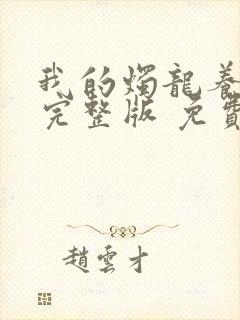 我的燭龍養
完整版 免費
趙雲才